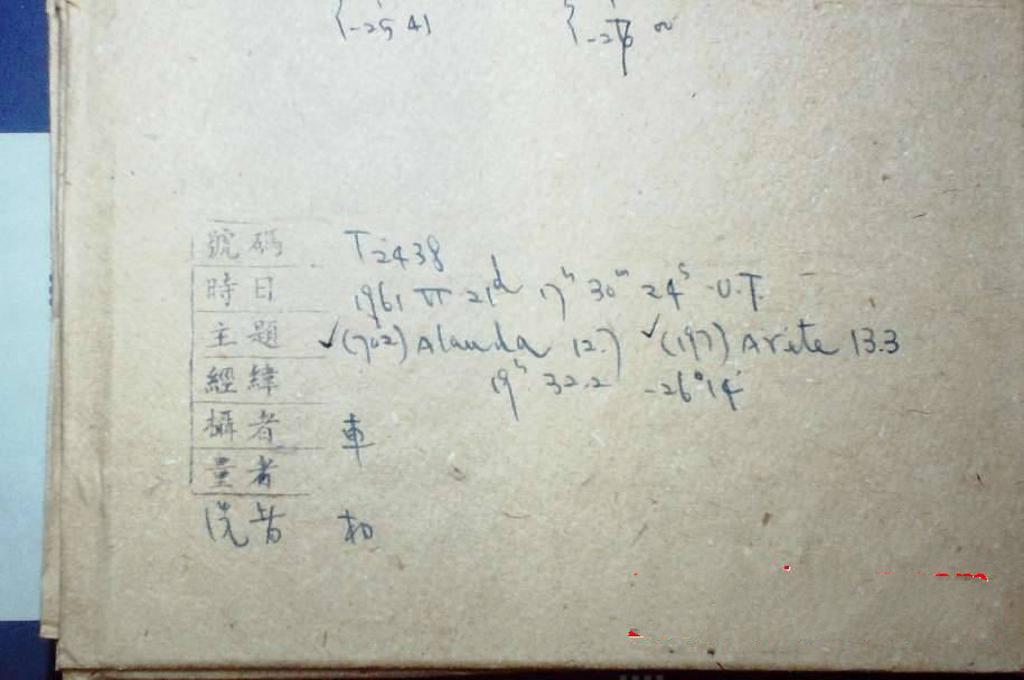 -25 41 -26
號碼 T2438
時日 1961 VI 21d 17h 30m 24s U.T.
主題 ✓(702) Alauda 12.7 ✓(197) Arete 13.3
經緯 19h 32.2 -26°14'
攝者 車
量者
洗者